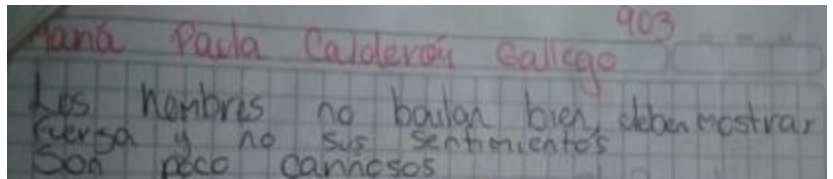 903
Maria Paula Calderón Gallego
Los hombres no bailan bien, deben mostrar
fuersa y no sus sentimientos
Son poco cariñosos